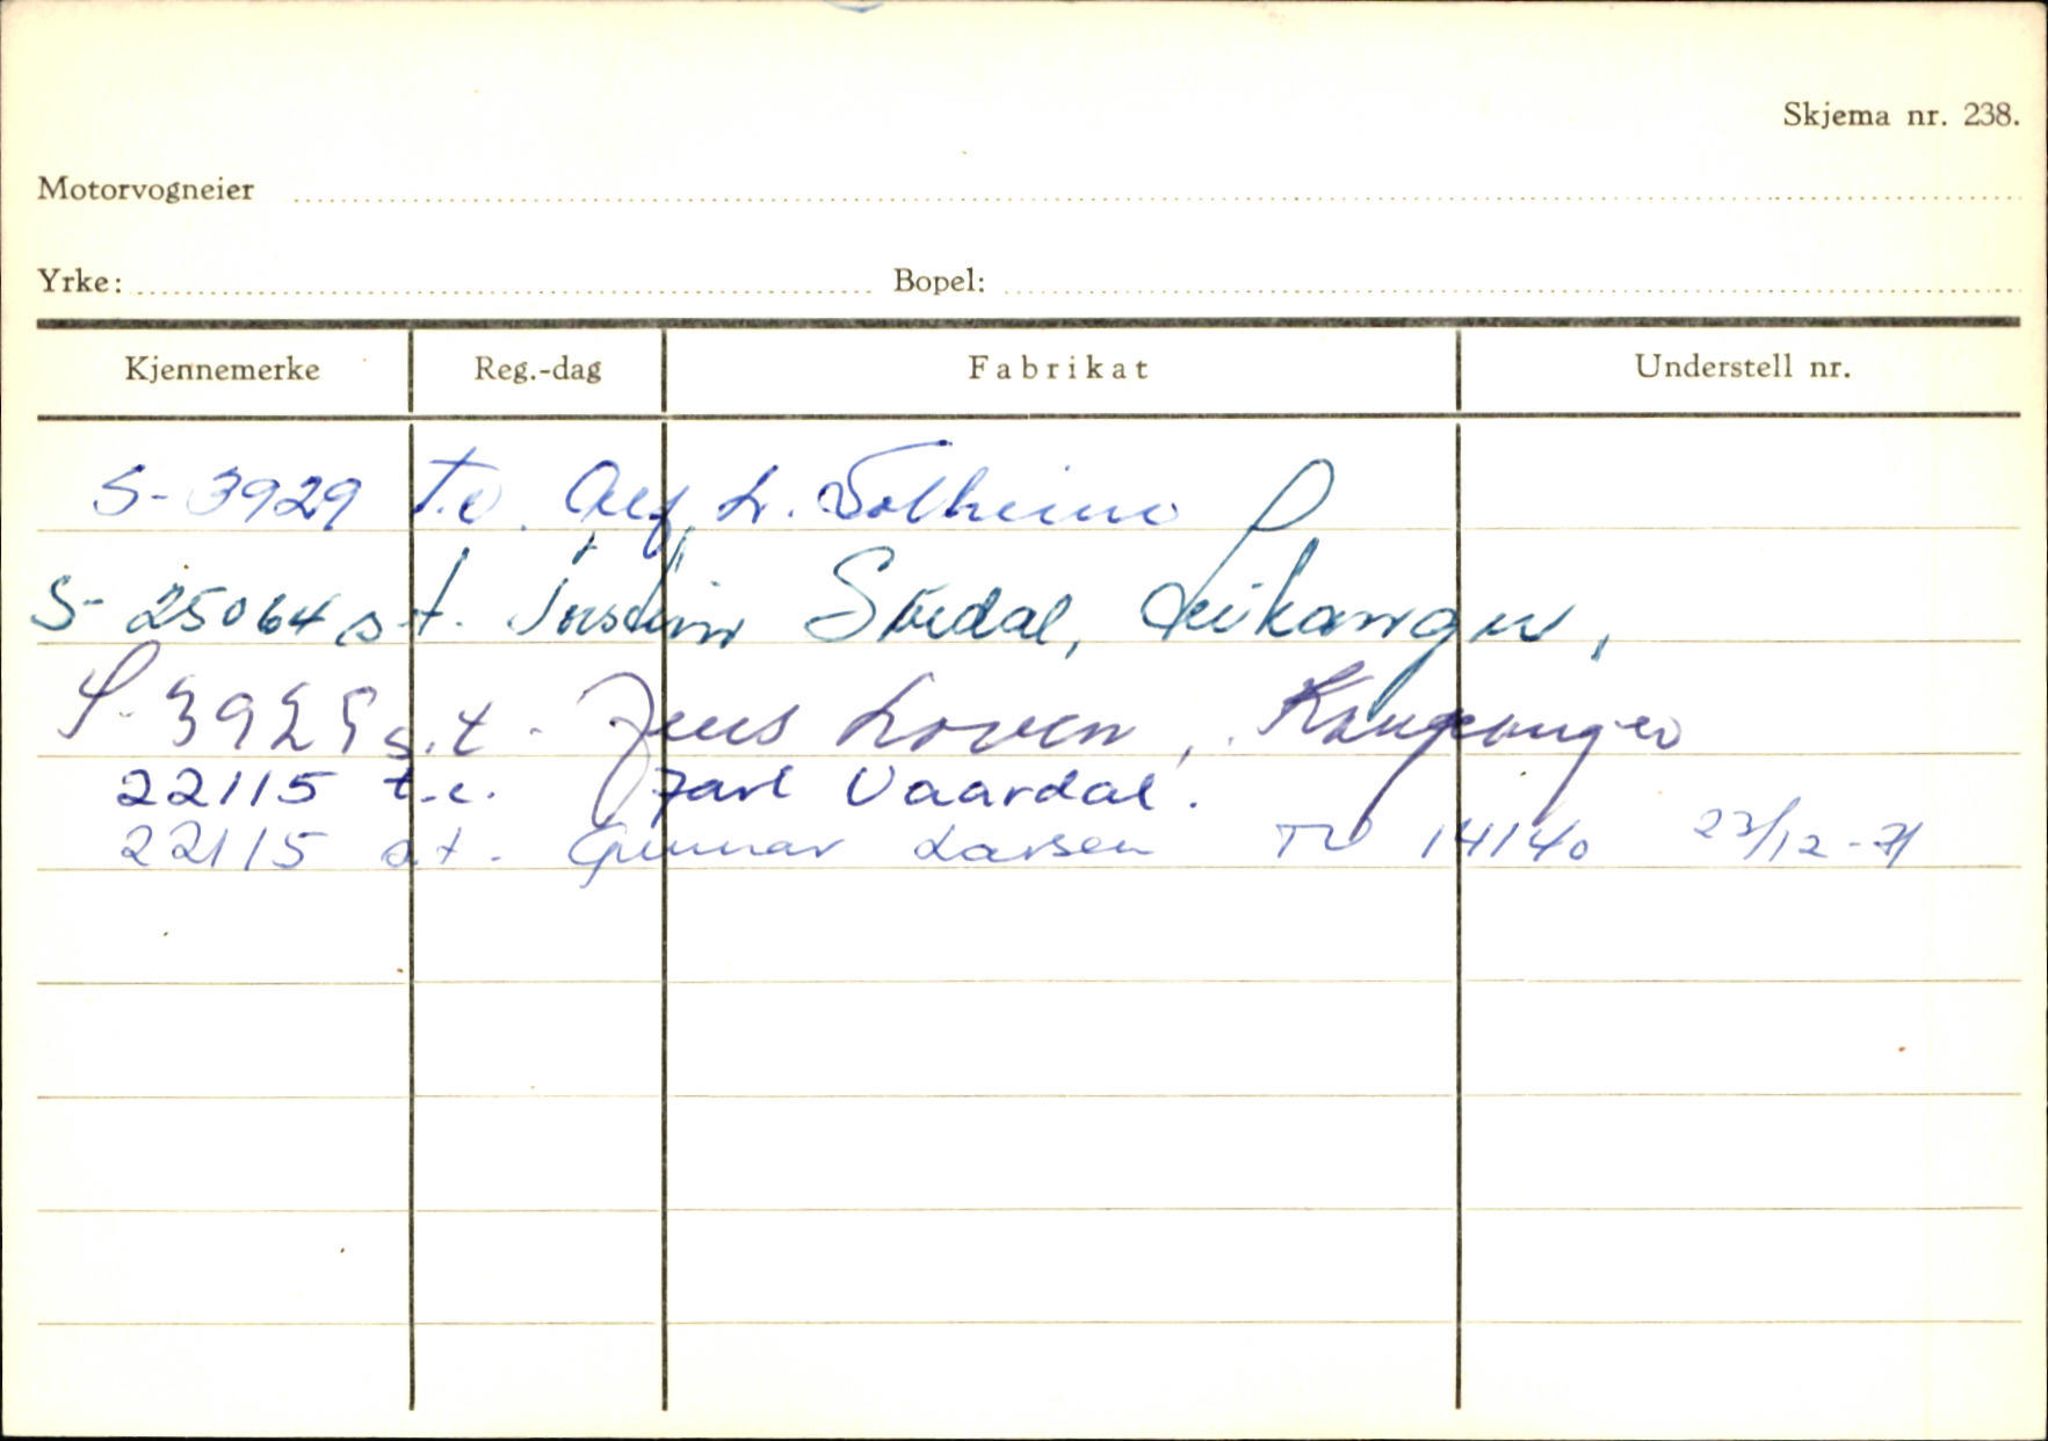 Skjema nr. 238.
Motorvogneier
Yrke: Bopel:
Kjennemerke Reg.-dag Fabrikat Understell nr.
S-3929 t.e. Alf L. Solheim
S-25064 s.t. Torstein Sødal, Leikanger,
S-3929 s.t. Jens Loven, Kaupanger
22115 t.e. Jarl Vaardal.
22115 s.t. Gunnar Larsen TU 14140 23/12-71